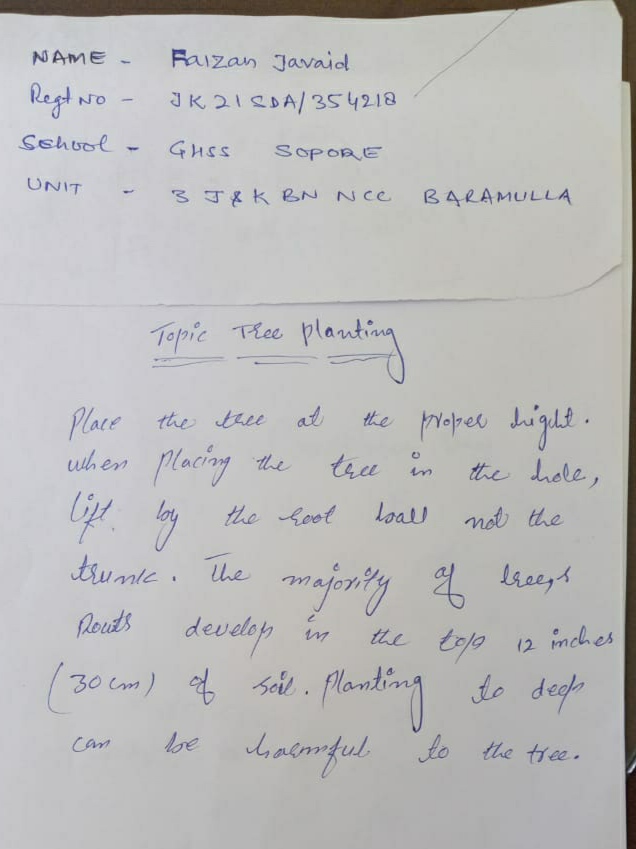 NAME - Faizan Javaid
Regt No - JK21SDA/354218
School - GHSS SOPORE
UNIT - 3 J&K BN NCC BARAMULLA
Topic Tree planting
Place the tree at the proper hight.
when placing the tree in the hole,
lift by the root ball not the
trunk. The majority of trees
Routs develop in the top 12 inches
(30cm) of soil. Planting to deep
can be harmful to the tree.